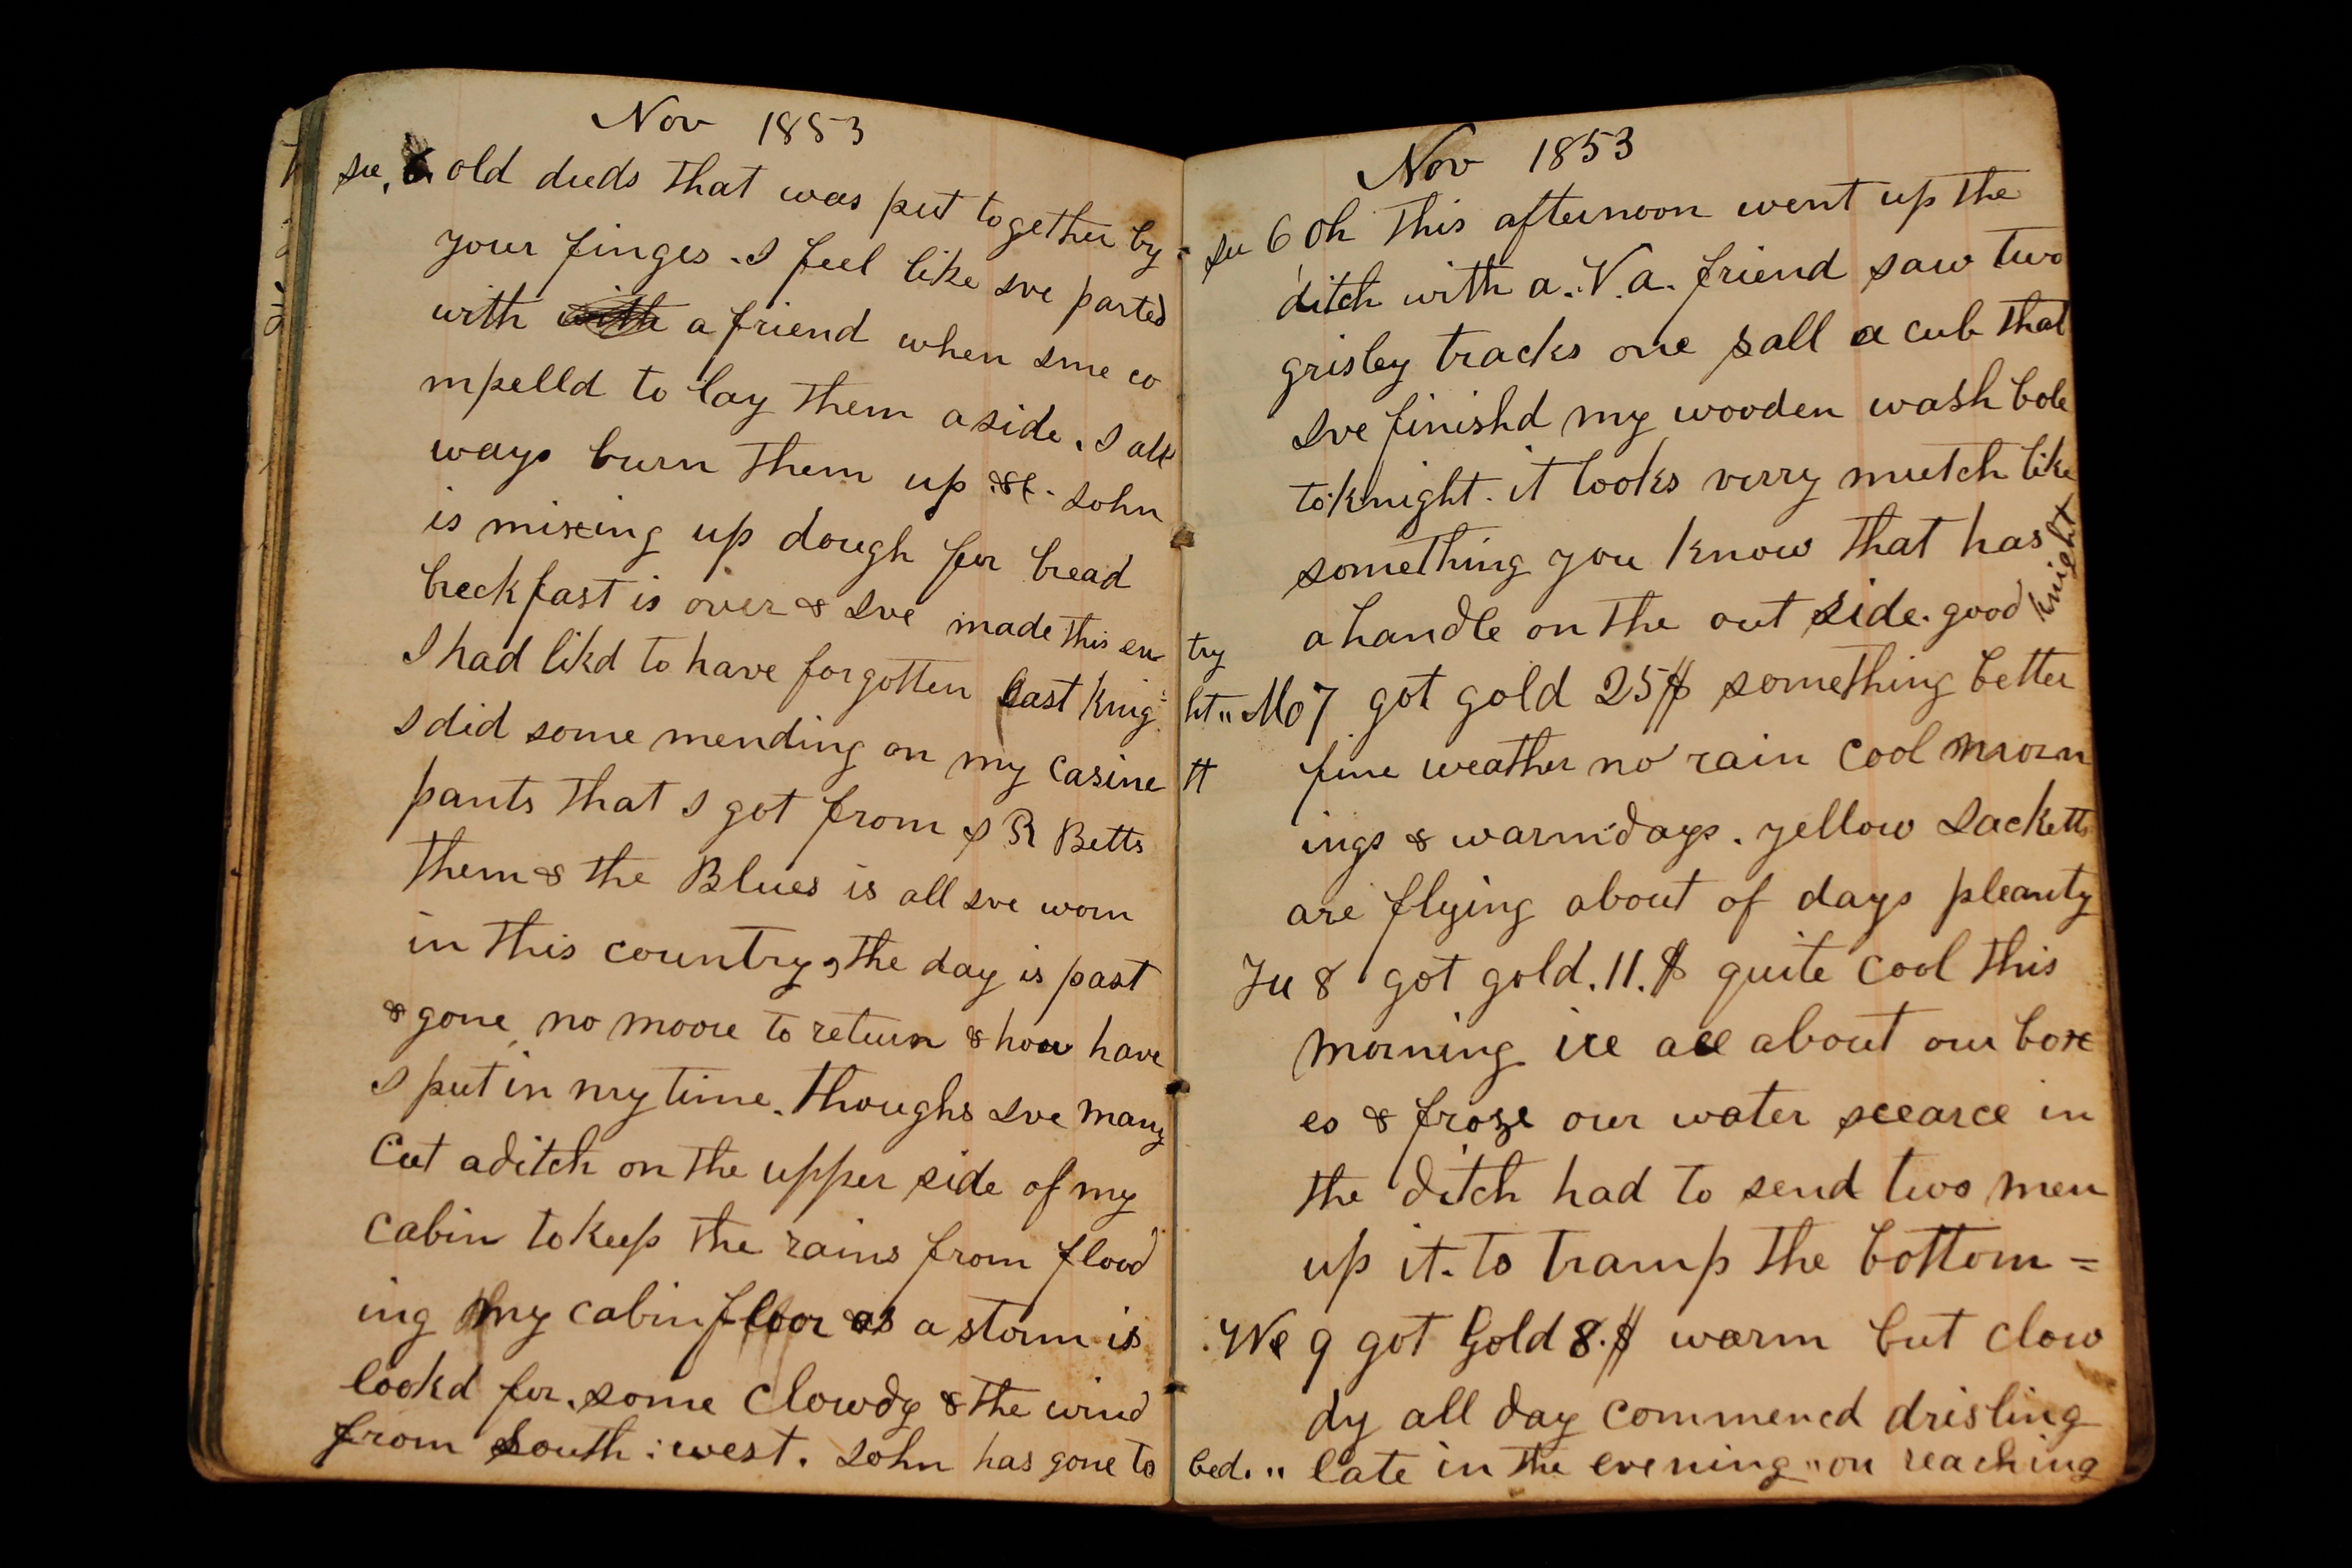 Nov 1853
Su, 6. old duds that was put together by
your finges. I feel like Ive parted
with with a friend when Ime co
mpelld to lay them aside. I all
ways burn them up &c. John
is mixing up dough for bread
breckfast is over & Ive made this en
try
I had likd to have forgotten last knig
ht"
I did some mending on my casine
tt
pants that I got from S R Betts
them & the Blues is all Ive worn
in this country, the day is past
& gone no moore to return & how have
I put in my time. thoughs Ive many
Cut a ditch on the upper side of my
cabin to keep the rains from flood
ing my cabin floor as a storm is
lookd for. some Clowdy & the wind
from South: west. John has gone to
bed. "
Nov 1853
Su 6 Oh this afternoon went up the
ditch with a. V.a. friend saw two
grisley tracks one sall a cub that
Ive finishd my wooden wash bole
to knight. it looks verry mutch like
something you know that has
a handle on the out side. good knight
Mo 7 got gold 25$ something better
fine weather no rain Cool morn
ings & warm days. yellow Jacketts
are flying about of days pleanty
Tu 8 got gold. 11. $ quite Cool this
morning ice all about our box
es & froze our water scearce in
the ditch had to send two men
up it. to tramp the bottom =
We 9 got Gold 8.$ warm but clow
dy all day commencd drisling
late in the evening " on reaching